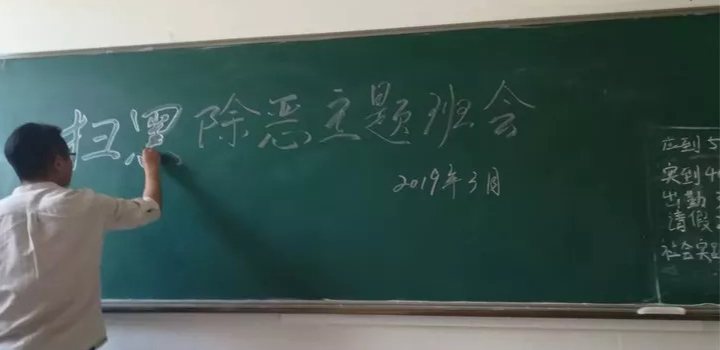 扫黑除恶主题班会
2019年3月
应到5
实到4
出勤
请假
社会实